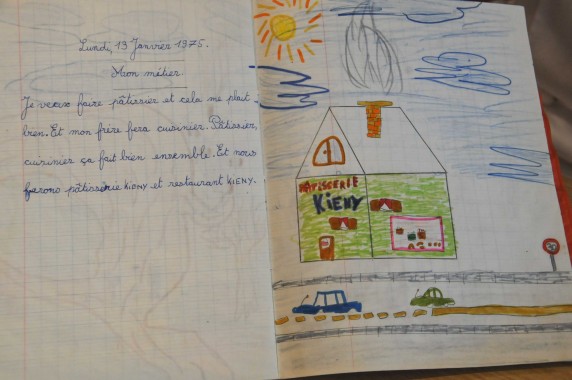 Lundi, 13 Janvier 1975.
Mon métier.
Je veux faire pâtissier et cela me plait
bien. Et mon frère fera cuisinier. Pâtissier,
cuisinier ça fait bien ensemble. Et nous
ferons pâtisserie KIENY et restaurant KIENY.
PATISSERIE
KIENY